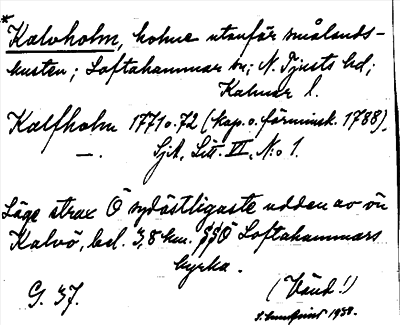 *Kalvholm, holme utanför smålands-
kusten; Loftahammar sn; N. Tjusts hd;
Kalmar l.
Kalfholm 1771 o. 72 (kap. o. förminsk. 1788).
—. Sjk. Litt. VI, N:o 1.
Läge strax Ö sydöstligaste udden av ön
Kalvö, bel. 3,8 km. SSÖ Loftahammars
kyrka.
G. 37. (Vänd!)
1938.